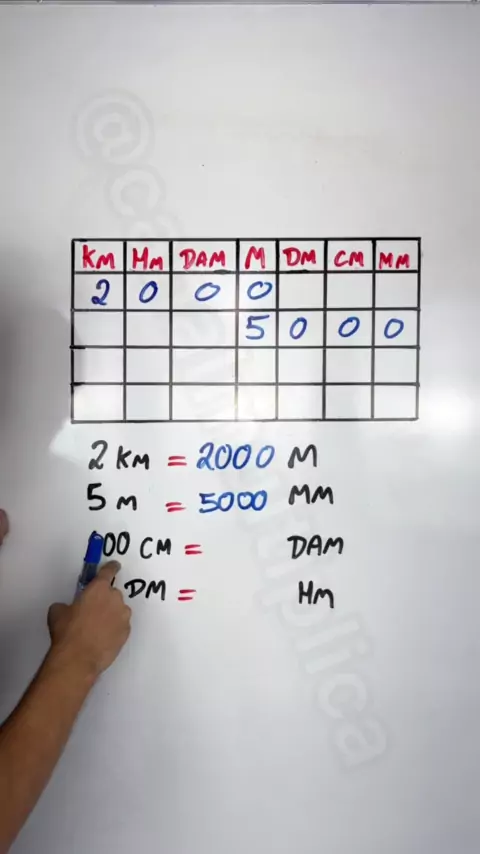 KM HM DAM M DM CM MM
2 0 0 0
5 0 0 0
2 KM = 2000 M
5 M = 5000 MM
00 CM = DAM
DM = HM